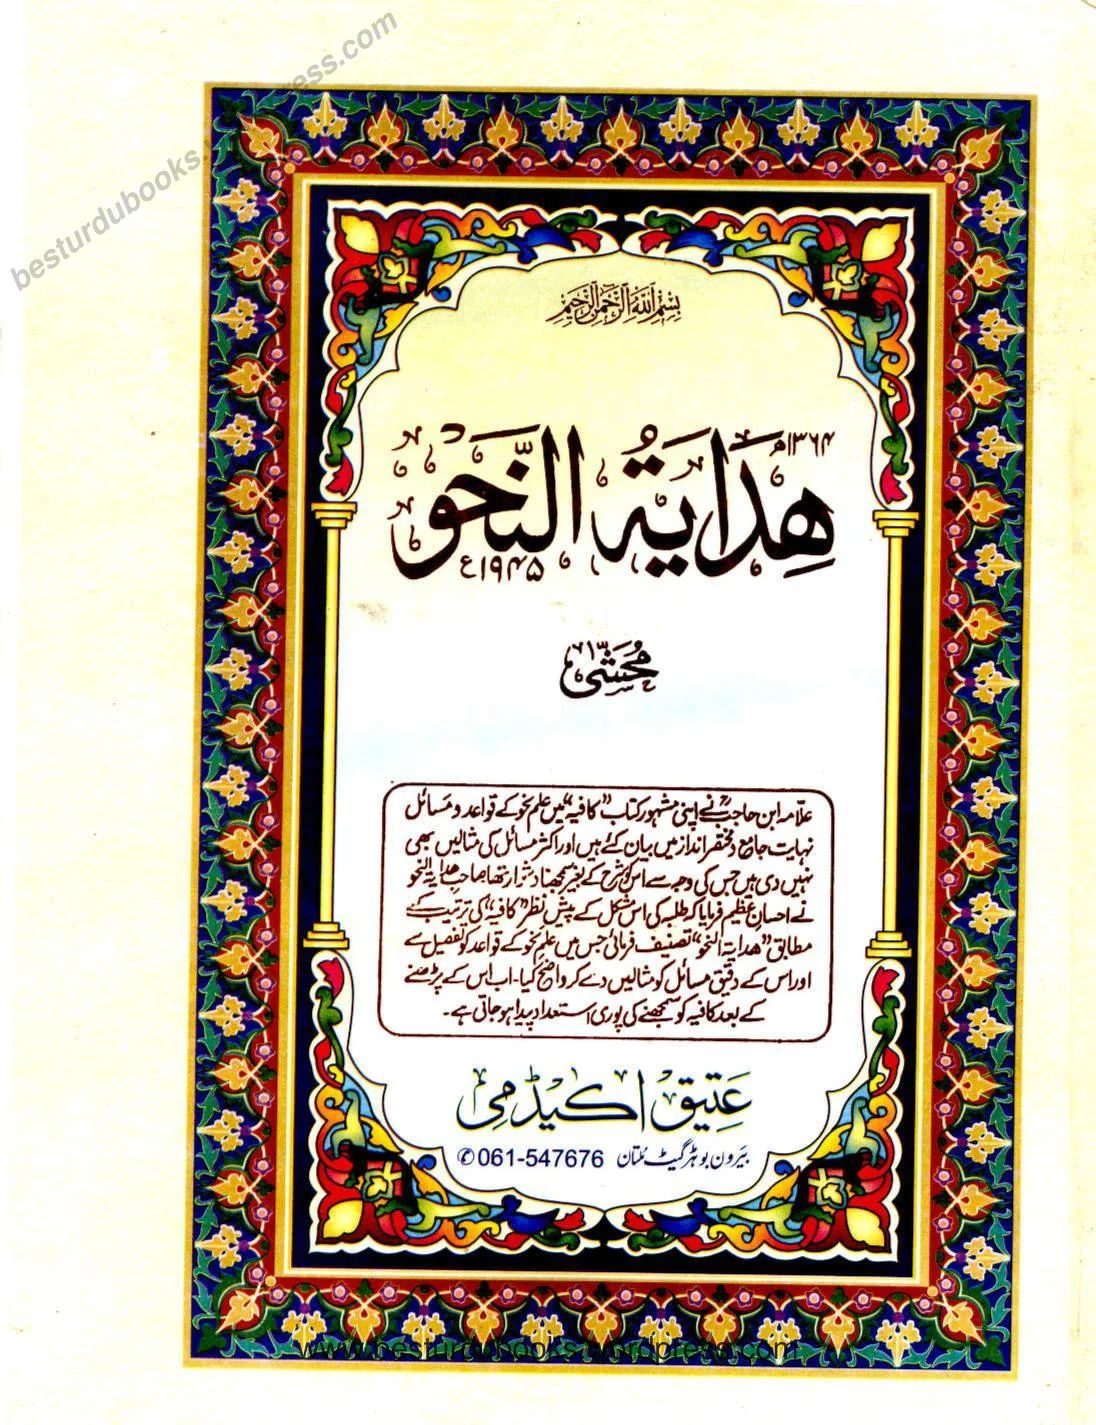 besturdubooks.wordpress.com
بسم الله الرحمن الرحيم
۱۳۶۴ھ
هِدَايَةُ النَّحو
۱۹۴۵ء
مُحَشّٰى
علّامہ ابن حاجبؒ نے اپنی مشہور کتاب "کافیہ" میں علم نحو کے قواعد و مسائل
نہایت جامع و مختصر انداز میں بیان کئے ہیں اور اکثر مسائل کی مثالیں بھی
نہیں دی ہیں جس کی وجہ سے اس کو شرح کے بغیر سمجھنا دشوار تھا صاحب هدایة النحو
نے احسانِ عظیم فرمایا کہ طلبہ کی اس مشکل کے پیش نظر "کافیہ" کی ترتیب کے
مطابق "هداية النحو" تصنیف فرمائی جس میں علم نحو کے قواعد کو تفصیل سے
اور اس کے دقیق مسائل کو مثالیں دے کر واضح کیا۔ اب اس کے پڑھنے
کے بعد کافیہ کو سمجھنے کی پوری استعداد پیدا ہو جاتی ہے۔
عَتیق اکیڈمی
بیرون بوہڑ گیٹ مُلتان 061-547676 ✆
www.besturdubooks.wordpress.com